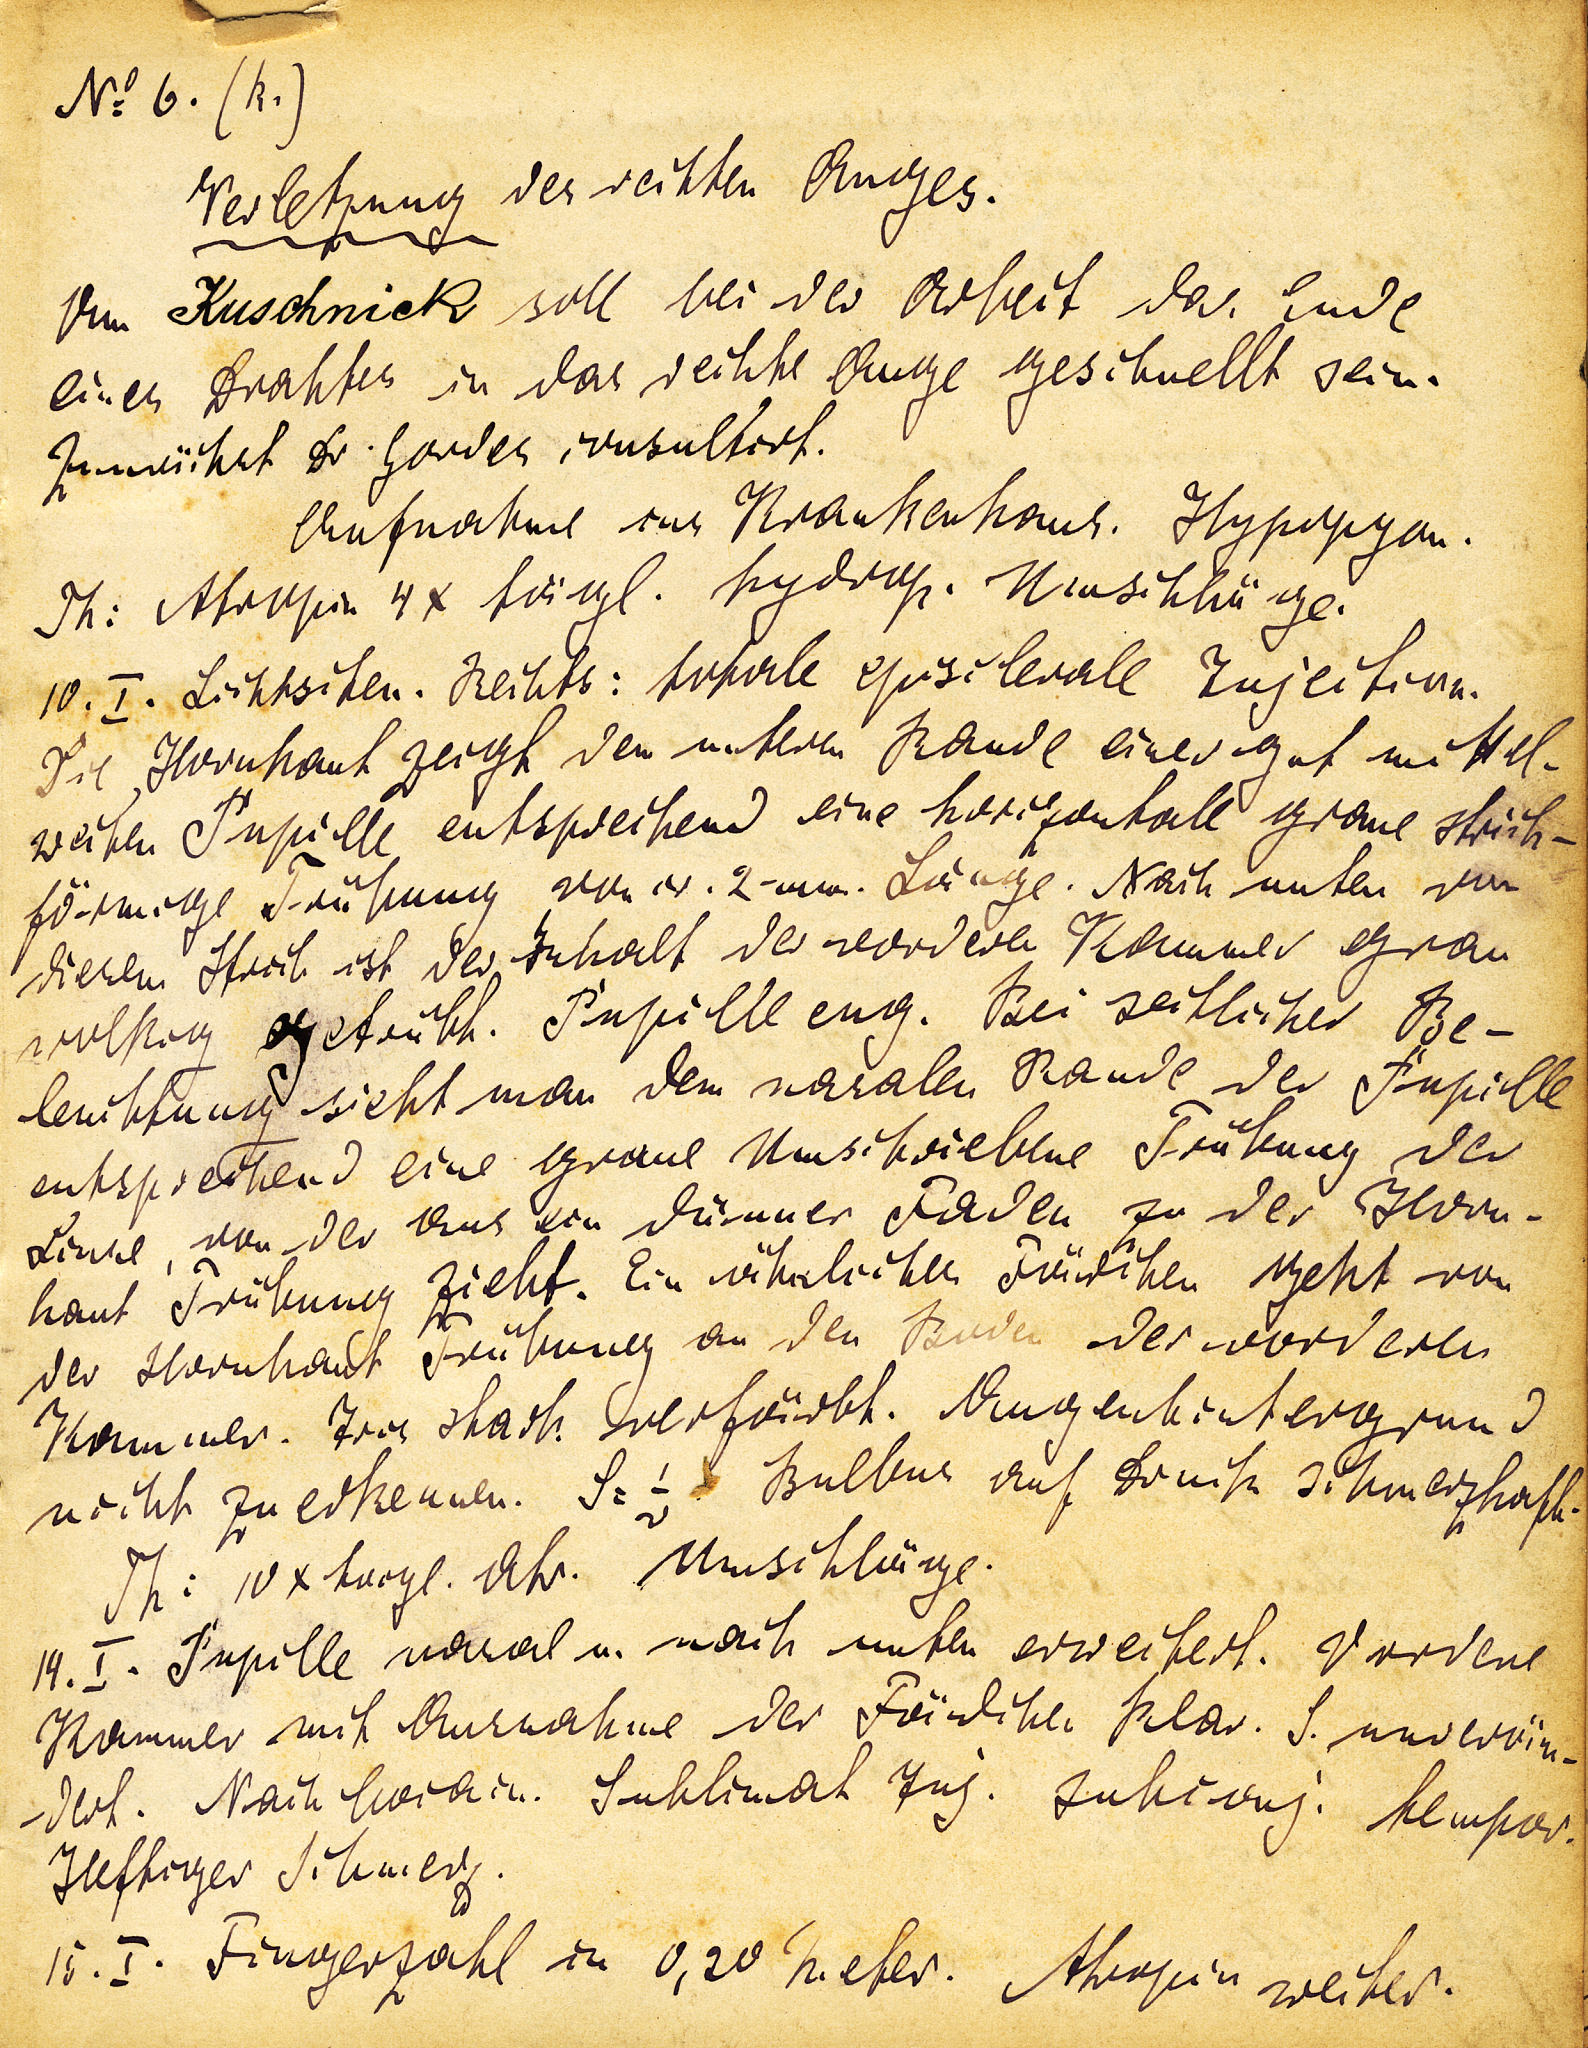 No 6. (k.)
Verletzung des rechten Auges.
Dem Kuschnick soll bei der Arbeit das Ende
eines Drahtes in das rechte Auge geschnellt sein.
Zunächst Dr. Gordes consultirt.
Aufnahme ins Krankenhaus. Hypopyon.
Th: Atropin 4 x tägl. hydrop. Umschläge.
10. I. Lichtscheu. Rechts: totale episclerale Injection.
Die Hornhaut zeigt dem unteren Rande einer gut mittel-
weiten Pupille entsprechend eine horizontale graue strich-
förmige Trübung von ca. 2 mm. Länge. Nach unten von
diesem Strich ist der Inhalt der vorderen Kammer grau
wolkig getrübt. Pupille eng. Bei seitlicher Be-
leuchtung sieht man dem nasalen Rande der Pupille
entsprechend eine graue umschriebene Trübung der
Linse, von der aus ein dünner Faden zu der Horn-
haut Trübung zieht. Ein ähnliches Fädchen geht von
der Hornhaut Trübung an den Boden der vorderen
Kammer. Iris stark verfärbt. Augenhintergrund
nicht zu erkennen. S = 1/∞ Bulbus auf Druck schmerzhaft.
Th: 10 x tägl. Atr. Umschläge.
14. I. Pupille nasal u. nach unten erweitert. Vordere
Kammer mit Ausnahme der Fädchen klar. S. unverän-
dert. Nach Cocain. Sublimat Inj. subconj. tempor.
Heftiger Schmerz.
15. I. Fingerzahl in 0,20 Meter. Atropin weiter.